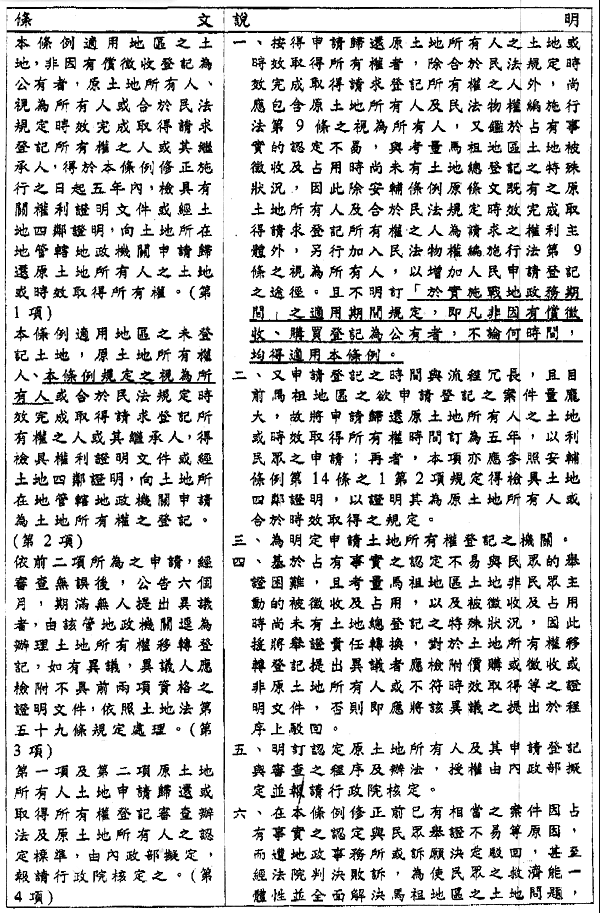 條文
說明
本條例適用地區之土
地，非因有償徵收登記為
公有者，原土地所有人、
視為所有人或合於民法
規定時效完成取得請求
登記所有權之人或其繼
承人，得於本條例修正施
行之日起五年內，檢具有
關權利證明文件或經土
地四鄰證明，向土地所在
地管轄地政機關申請歸
還原土地所有人之土地
或時效取得所有權。(第
1項)
本條例適用地區之未登
記土地，原土地所有權
人、本條例規定之視為所
有人或合於民法規定時
效完成取得請求登記所
有權之人或其繼承人，得
檢具權利證明文件或經
土地四鄰證明，向土地所
在地管轄地政機關申請
為土地所有權之登記。
(第2項)
依前二項所為之申請，經
審查無誤後，公告六個
月，期滿無人提出異議
者，由該管地政機關逕為
辦理土地所有權移轉登
記，如有異議，異議人應
檢附不具前兩項資格之
證明文件，依照土地法第
五十九條規定處理。(第
3項)
第一項及第二項原土地
所有人土地申請歸還或
取得所有權登記審查辦
法及原土地所有人之認
定標準，由內政部擬定，
報請行政院核定之。(第
4項)
一、按得申請歸還原土地所有人之土地或
時效取得所有權者，除合於民法規定時
效完成取得請求登記所有權之人外，尚
應包含原土地所有人及民法物權編施行
法第9條之視為所有人，又鑑於占有事
實的認定不易，與考量馬祖地區土地被
徵收及占用時尚未有土地總登記之特殊
狀況，因此除安輔條例原條文既有之原
土地所有人及合於民法規定時效完成取
得請求登記所有權之人為請求之權利主
體外，另行加入民法物權編施行法第9
條之視為所有人，以增加人民申請登記
之途徑。且不明訂「於實施戰地政務期
間」之適用期間規定，即凡非因有償徵
收、購買登記為公有者，不論何時間，
均得適用本條例。
二、又申請登記之時間與流程冗長，且目
前馬祖地區之欲申請登記之案件量龐
大，故將申請歸還原土地所有人之土地
或時效取得所有權時間訂為五年，以利
民眾之申請；再者，本項亦應參照安輔
條例第14條之1第2項規定得檢具土地
四鄰證明，以證明其為原土地所有人或
合於時效取得之規定。
三、為明定申請土地所有權登記之機關。
四、基於占有事實之認定不易與民眾的舉
證困難，且考量馬祖地區土地非民眾主
動的被徵收及占用，以及被徵收及占用
時尚未有土地總登記之特殊狀況，因此
援將舉證責任轉換，對於土地所有權移
轉登記提出異議者應檢附價購或徵收或
非原土地所有人或不符時效取得等之證
明文件，否則即應將該異議之提出於程
序上駁回。
五、明訂認定原土地所有人及其申請登記
與審查之程序及辦法，授權由內政部擬
定並報請行政院核定。
六、在本條例修正前已有相當之案件因占
有事實之認定與民眾舉證不易等原因，
而遭地政事務所或訴願決定駁回，甚至
經法院判決敗訴，為使民眾之救濟能一
體性並全面解決馬祖地區之土地問題，